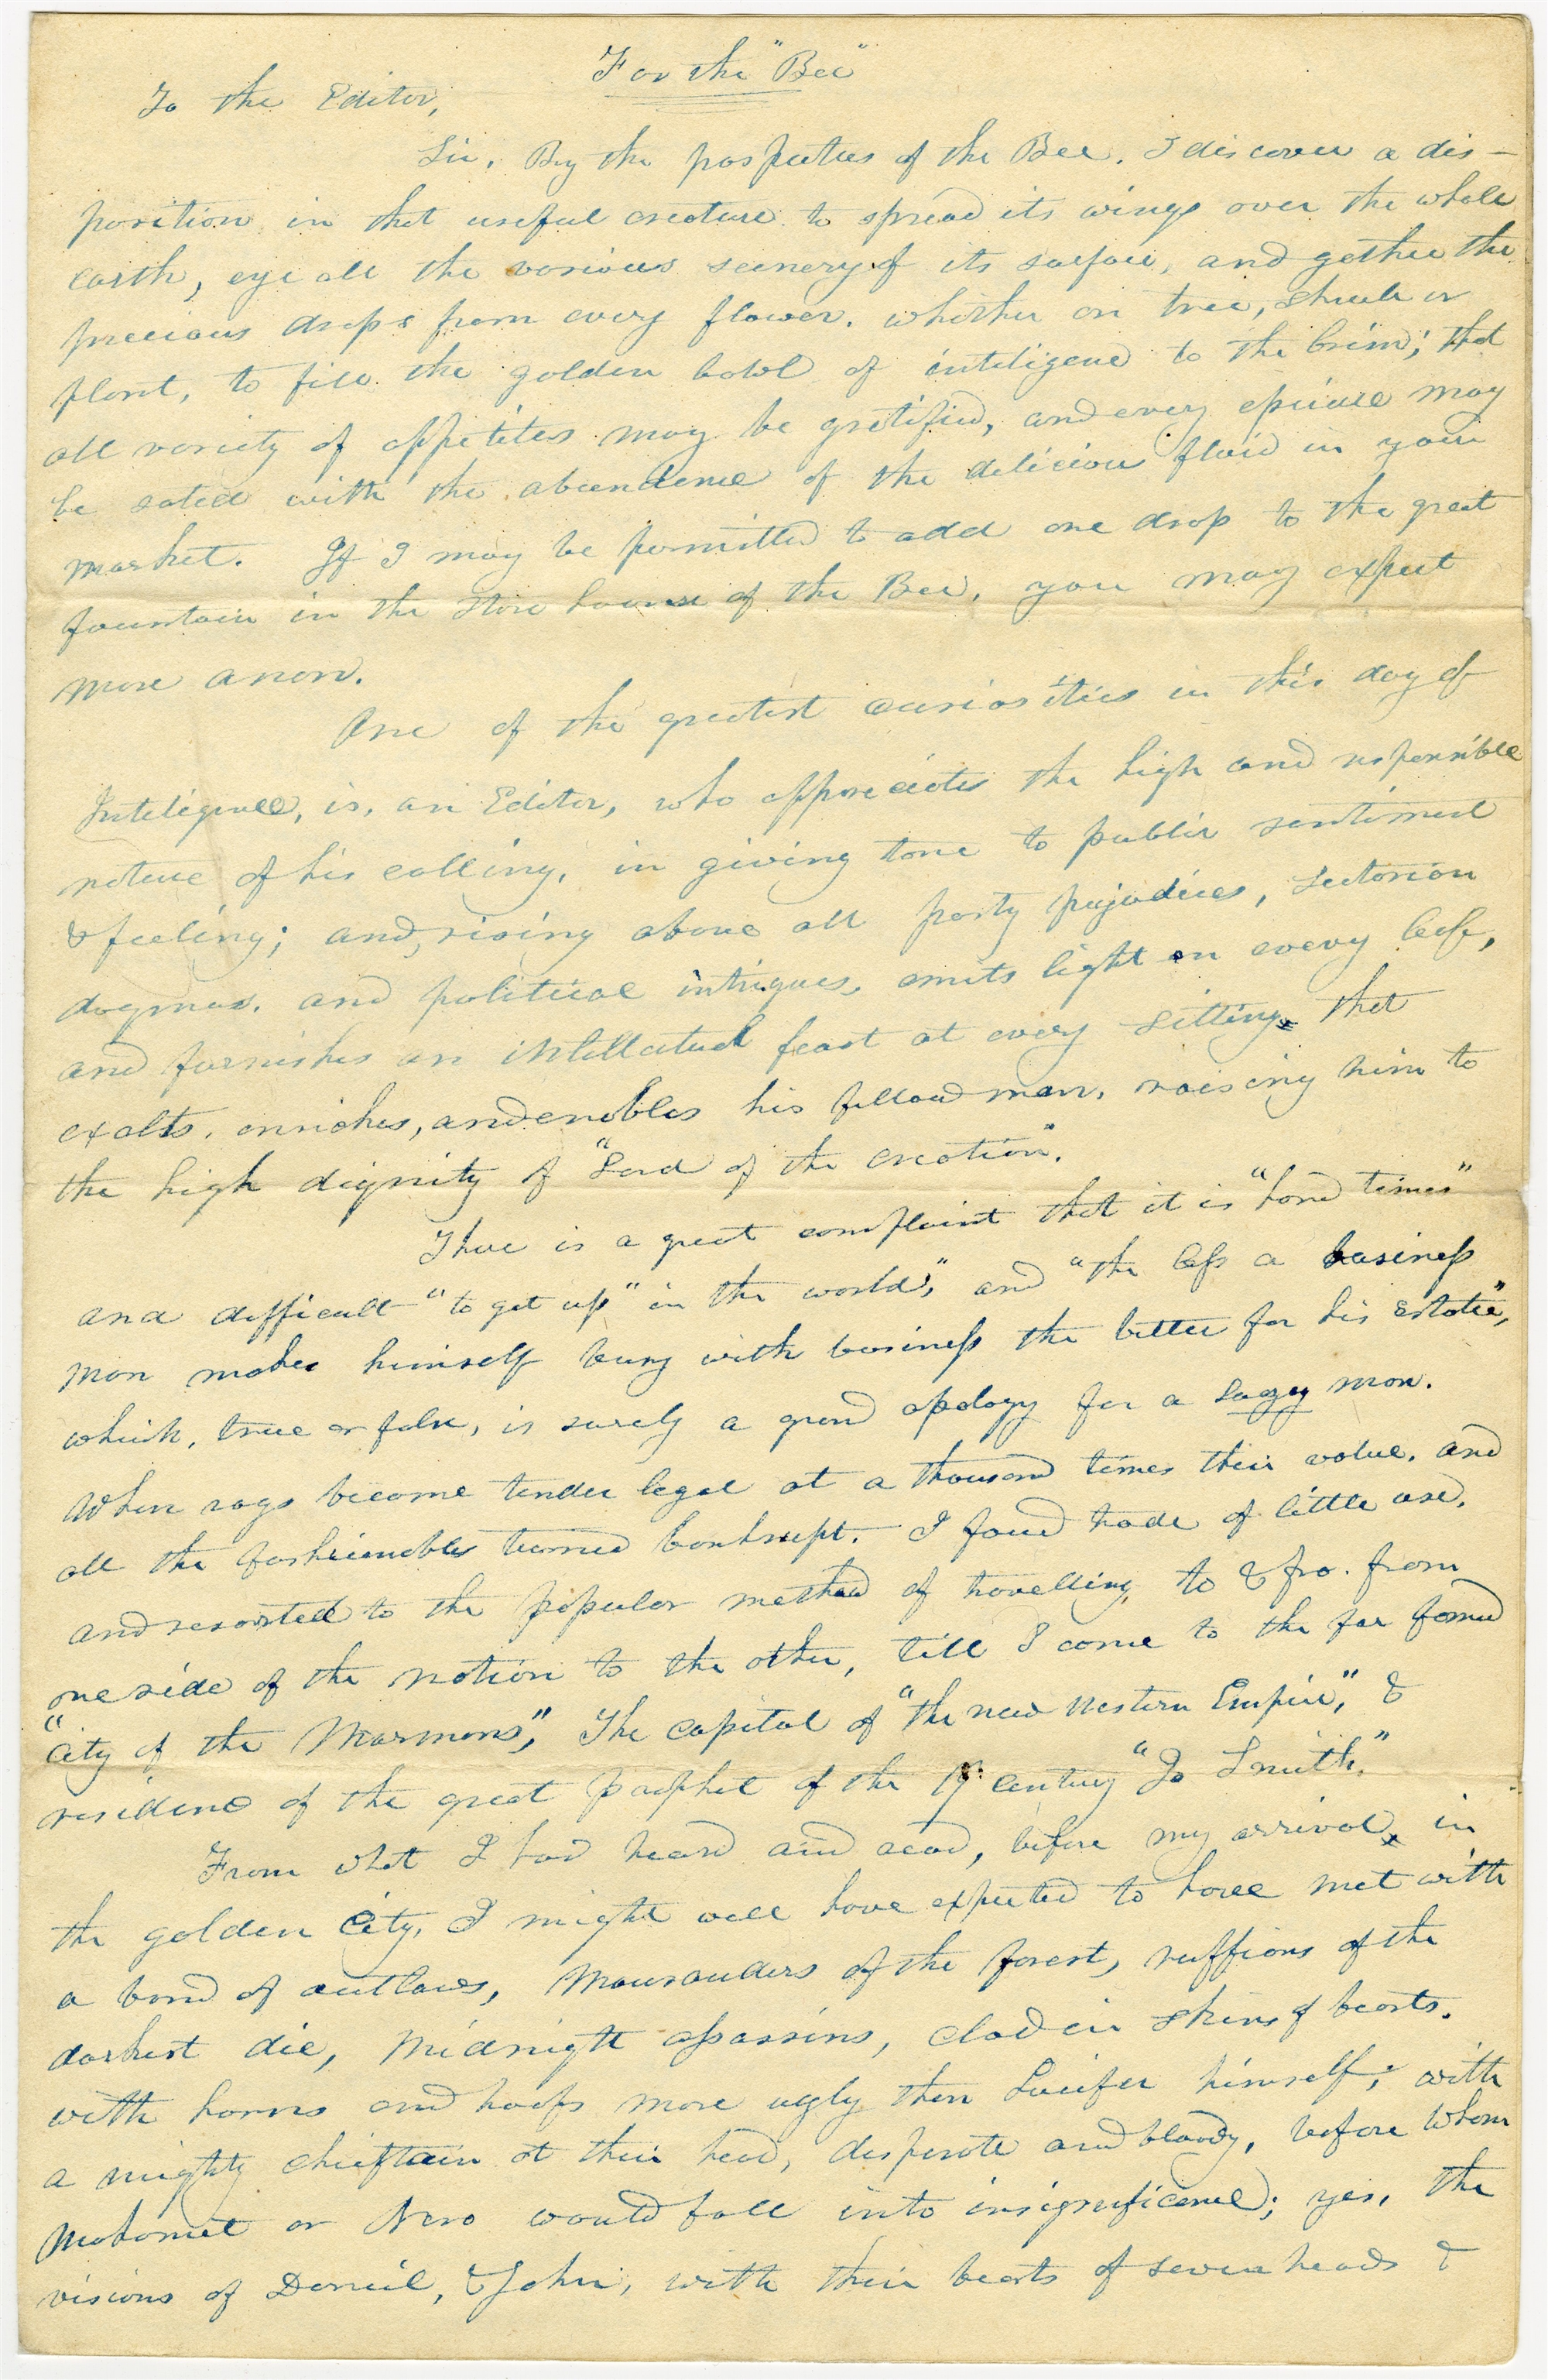 For the "Bee"
To the Editor,
Sir, By the prospectus of the Bee. I discover a dis-
position in that useful creature to spread its wings over the whole
earth, eye all the various scenery of its surface, and gether the
precious drops from every flower. whether on tree, shrub or
plant, to fill the golden bowl of inteligence to the brim; that
all variety of appetites may be gratified, and every epicure may
be sated with the abundence of the delicious fluid in your
market. If I may be permitted to add one drop to the great
fountain in the Store house of the Bee, you may expect
more anon.
One of the greatest curiosities in this day of
Inteligence, is, an Editor, who appreciates the high and responsible
nature of his calling, in giving tone to public sentiment
& feeling; and, rising above all party prejudices, Sectarian
dogmas. and political intrigues, emits light on every leaf,
and furnishes an intellectual feast at every sitting, that
exalts, enriches, and enobles his fellow man, raising him to
the high dignity of "Lord of the creation".
There is a great complaint that it is "hard times"
and difficult "to get up" in the world", and "the less a business
man makes himself busy with business the better for his estate",
which, true or false, is surely a grand apology for a Lazy man.
When rags become tender legal at a thousand times their value. and
all the fashionables turned bankrupt. I found trade of little use,
and resorted to the popular method of travelling, to & fro. from
one side of the nation to the other, till I come to the far famed
"City of the Mormons", The Capital of "the new Western Empire", &
residence of the great prophet of the 19 Century "Jo Smith."
From what I had heard and read, before my arrival, in
the golden City, I might well have expected to have met with
a band of outlaws, Mausauders of the forest, ruffians of the
darkest die, Midnight assassins, clad in skins of beasts.
with horns and hoofs more ugly then Lucifer himself; with
a mighty chieftain at their head, desperate and bloody, before whom
Mahomet or Nero would fall into insignificance; yes, the
visions of Daniel, & John, with their beasts of seven heads &